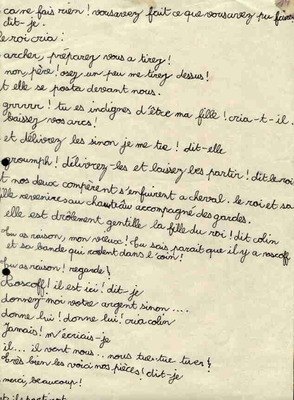 ça ne fais rien! vous avez fait ce que vous avez pu faire
dit-je.
le roi cria:
archer, préparez vous a tirez!
non, père! osez un peu me tirez dessus!
et elle se posta devant nous.
grrrrr! tu es indignes d'être ma fille! cria-t-il.
baissez vos arcs!
et délivrez les sinon je me tue! dit-elle
groumph! délivrez-les et laissez les partir! dit le roi
et nos deux compèrent s'enfuirent a cheval. le roi et sa
fille revenire au chateau accompagné des gardes.
elle est drôlement gentille la fille du roi! dit colin
tu as raison, mon vieux! tu sais parait que il y a roscoff
et sa bande qui rodent dans l'coin!
tu as raison! regarde!
Roscoff! il est ici! dit-je
donnez-moi votre argent sinon....
donne lui! donne lui! cria colin
Jamais! m'écriais-je
il... il vont nous.. nous tue-tue tuer!
très bien les voici nos pièces! dit-je
merci, beaucoup!
et ils partent